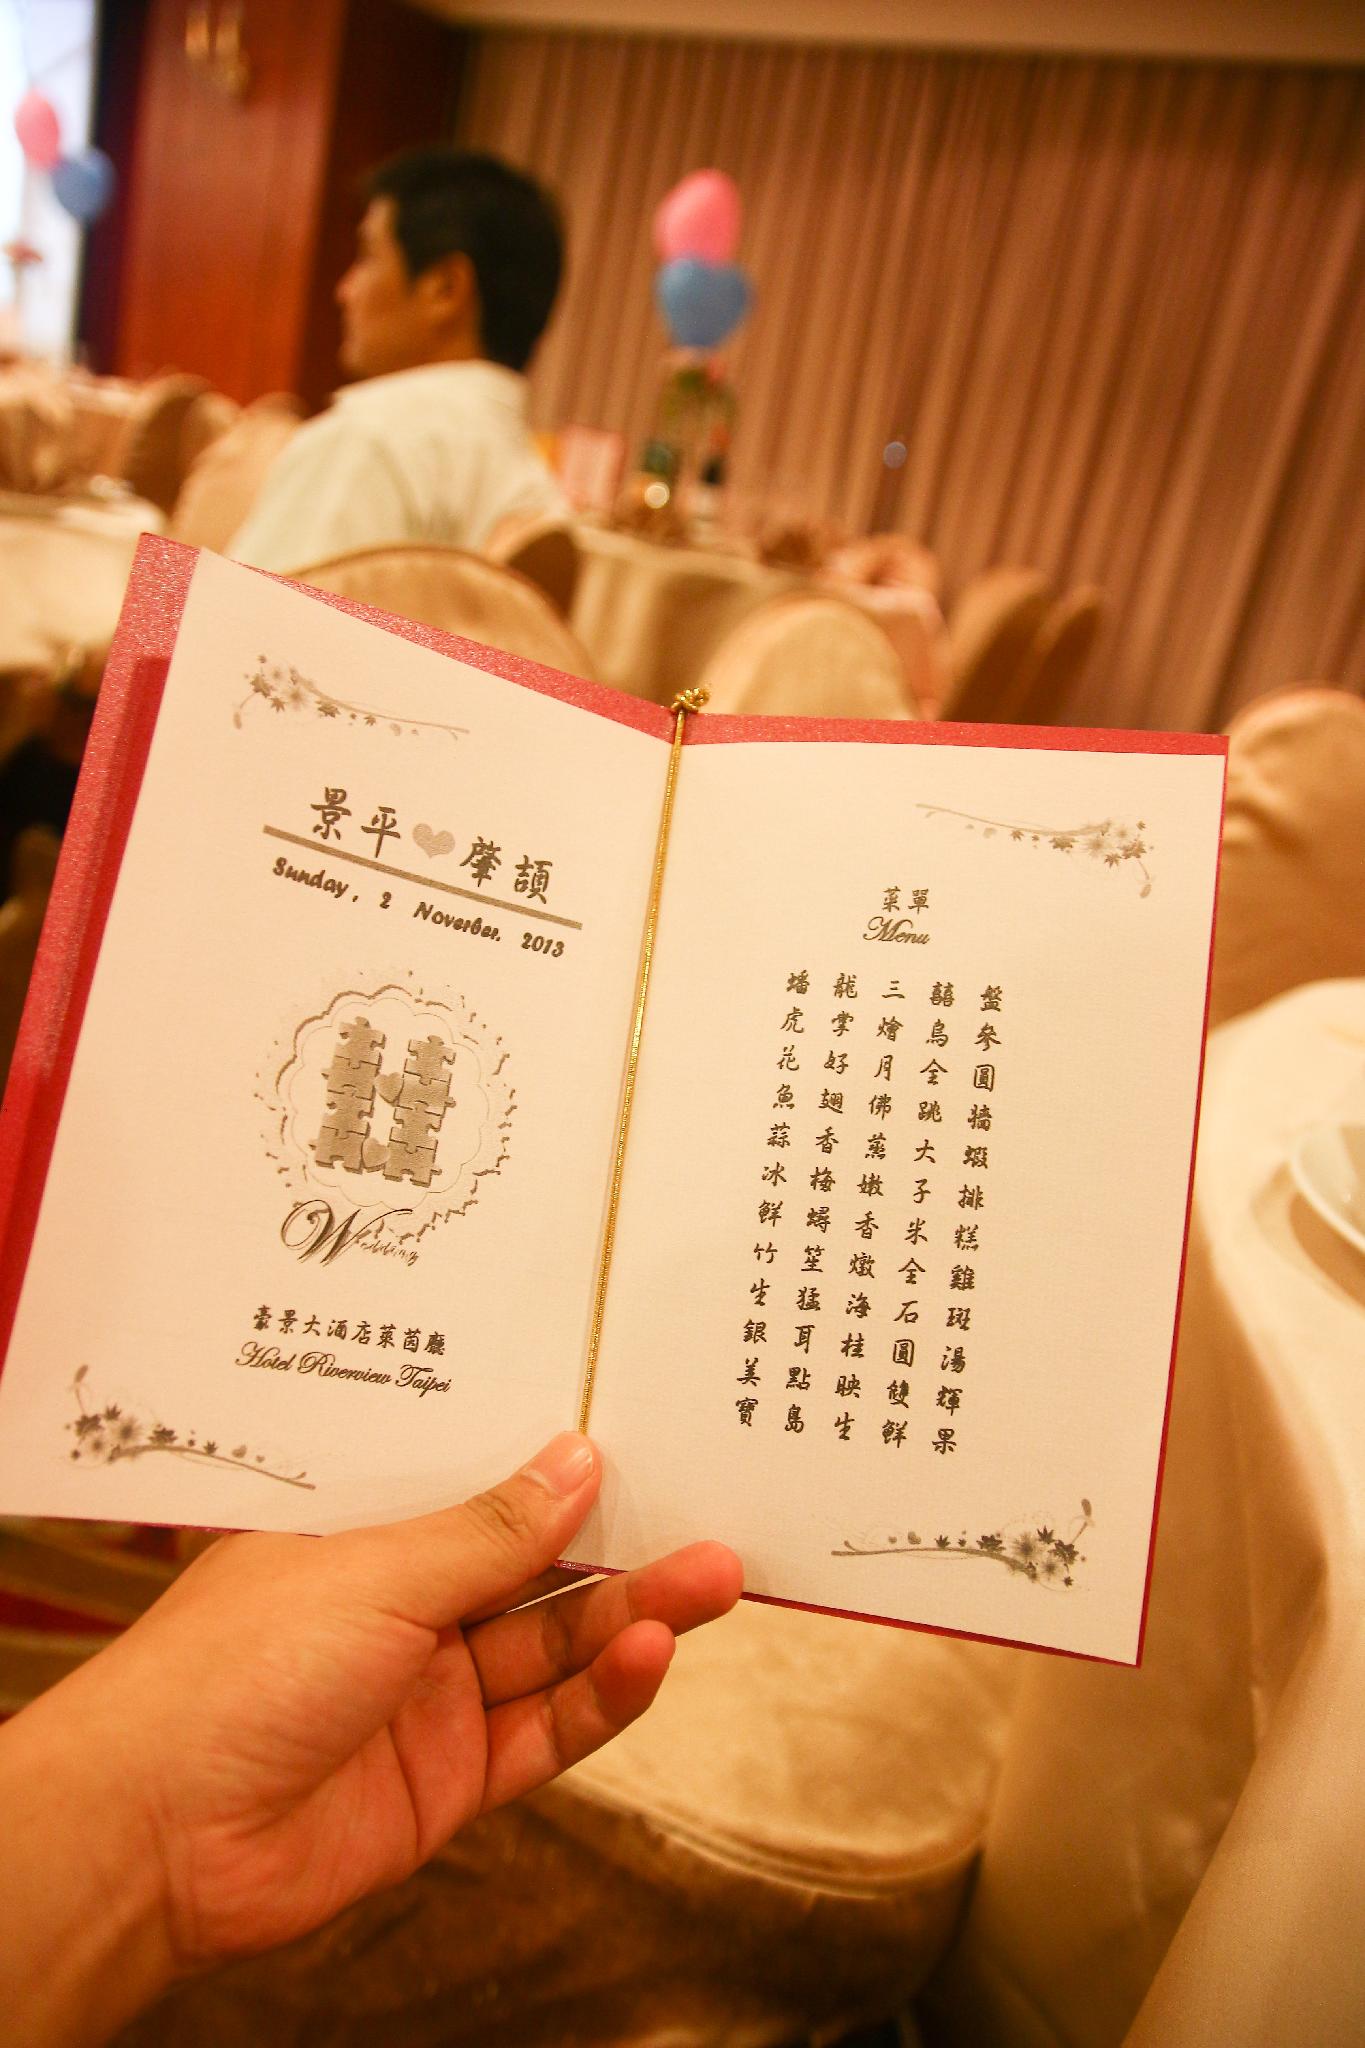 景平♥肇頡
Sunday, 2 Noverber. 2013
Wedding
豪景大酒店萊茵廳
Hotel Riverview Taipei
菜單
Menu
蟠龍三囍盤
虎掌燴烏參
花好月全圓
魚翅佛跳牆
蒜香蒸大蝦
冰梅嫩子排
鮮蟳香米糕
竹笙燉全雞
生猛海石斑
銀耳桂圓湯
美點映雙輝
寶島生鮮果